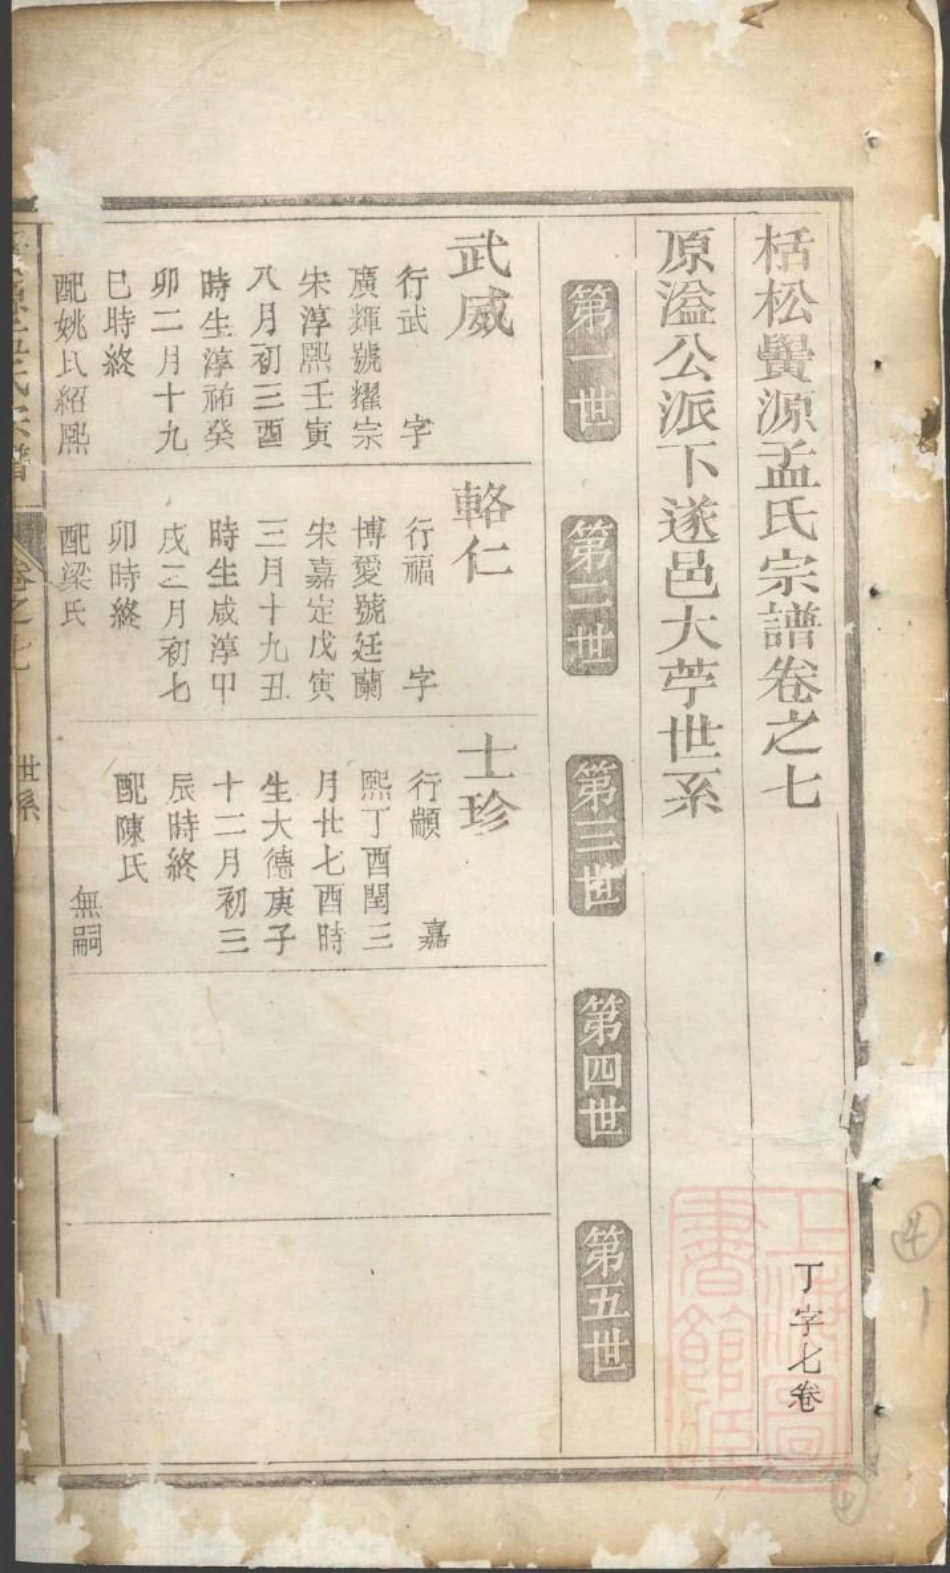 栝松黌源孟氏宗譜卷之七
丁字七卷
原溢公派下遂邑大苧世系
第一世
第二世
第三世
第四世
第五世
武威
行武 字
廣輝號耀宗
宋淳熙壬寅
八月初三酉
時生淳祐癸
卯二月十九
巳時終
配姚氏紹熙
輅仁
行福 字
博愛號廷蘭
宋嘉定戊寅
三月十九丑
時生咸淳甲
戌二月初七
卯時終
配梁氏
士珍
行顓 嘉
熙丁酉閏三
月廿七酉時
生大德庚子
十二月初三
辰時終
配陳氏
無嗣
卷之七
世系
上海圖
書館藏